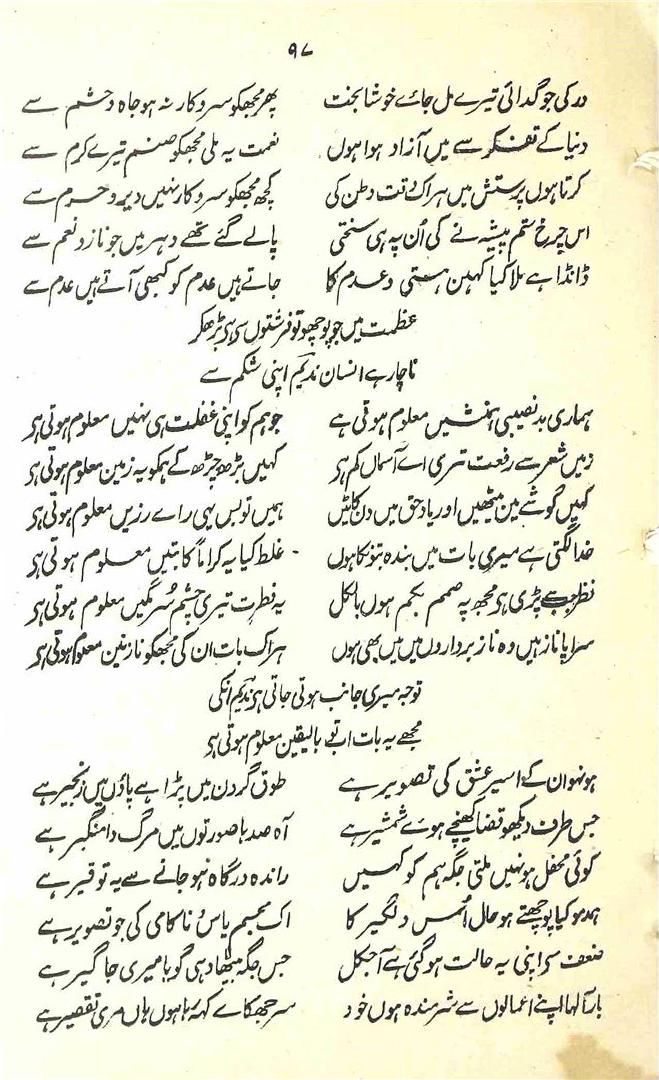 ۹۷
در کی جو گدائی تیرے مل جائے خوشا بخت پھر مجھکو سروکار نہ ہو جاہ و حشم سے
دنیا کے تفکر سے میں آزاد ہوا ہوں نعمت یہ ملی مجھکو صنم تیرے کرم سے
کرتا ہوں پرستش میں ہر اک وقت وطن کی کچھ مجھکو سروکار نہیں دیر و حرم سے
اس چرخ ستم پیشہ نے کی اُن پہ ہی سختی پالے گئے تھے دہر میں جو ناز و نعم سے
ڈانڈا ہے ملا کیا کہیں ہستی و عدم کا جاتے ہیں عدم کو کبھی آتے ہیں عدم سے
عظمت میں جو پوچھو تو فرشتوں سے ہی بڑھکر
ناچار ہے انسان ندیم اپنی شکم سے
ہماری بدنصیبی ہمنشیں معلوم ہوتی ہے جو ہم کو اپنی غفلت ہی نہیں معلوم ہوتی ہی
زمیں شعر سے رفعت تری اے آسماں کم ہی کہیں بڑھ چڑھ کے ہمکو یہ زمین معلوم ہوتی ہی
کہیں گوشے مین بیٹھیں اور یاد حق میں دن کاٹیں ہمیں تو بس یہی راے رزیں معلوم ہوتی ہی
خدا لگتی ہے میری بات میں بندہ بتونکا ہوں غلط کیا یہ کراماً کاتبیں معلوم ہوتی ہی
نظر جب سے پڑی ہی مجھ پہ صمم بکم ہوں بالکل یہ فطرت تیری چشم سُرمگیں معلوم ہوتی ہی
سراپا ناز ہیں وہ ناز برداروں میں میں بھی ہوں ہر اک بات ان کی مجھکو نازنین معلوم ہوتی ہی
توجہ میری جانب ہوتی جاتی ہی ندیم انکی
مجھے یہ بات اب تو بالیقین معلوم ہوتی ہی
ہو نہو ان کے اسیر عشق کی تصویر ہے طوق گردن میں پڑا ہے پاؤں میں زنجیر ہے
جس طرف دیکھو قضا کھینچے ہوے شمشیر ہے آہ صدہا صورتوں میں مرگ دامنگیر ہے
کوئی محفل ہو نہیں ملتی جگہ ہم کو کہیں راندہ درگاہ ہو جانے سے یہ توقیر ہے
ہمدمو کیا پوچھتے ہو حال اُس دلگیر کا اک مجسم یاس و ناکامی کی جو تصویر ہے
ضعف سے اپنی یہ حالت ہو گئی ہے آجکل جس جگہ بیٹھا دہی گویا میری جاگیر ہے
بار آلہا اپنے اعمالوں سے شرمندہ ہوں خود سر جھکاے کہہ رہا ہوں ہاں مری تقصیر ہے